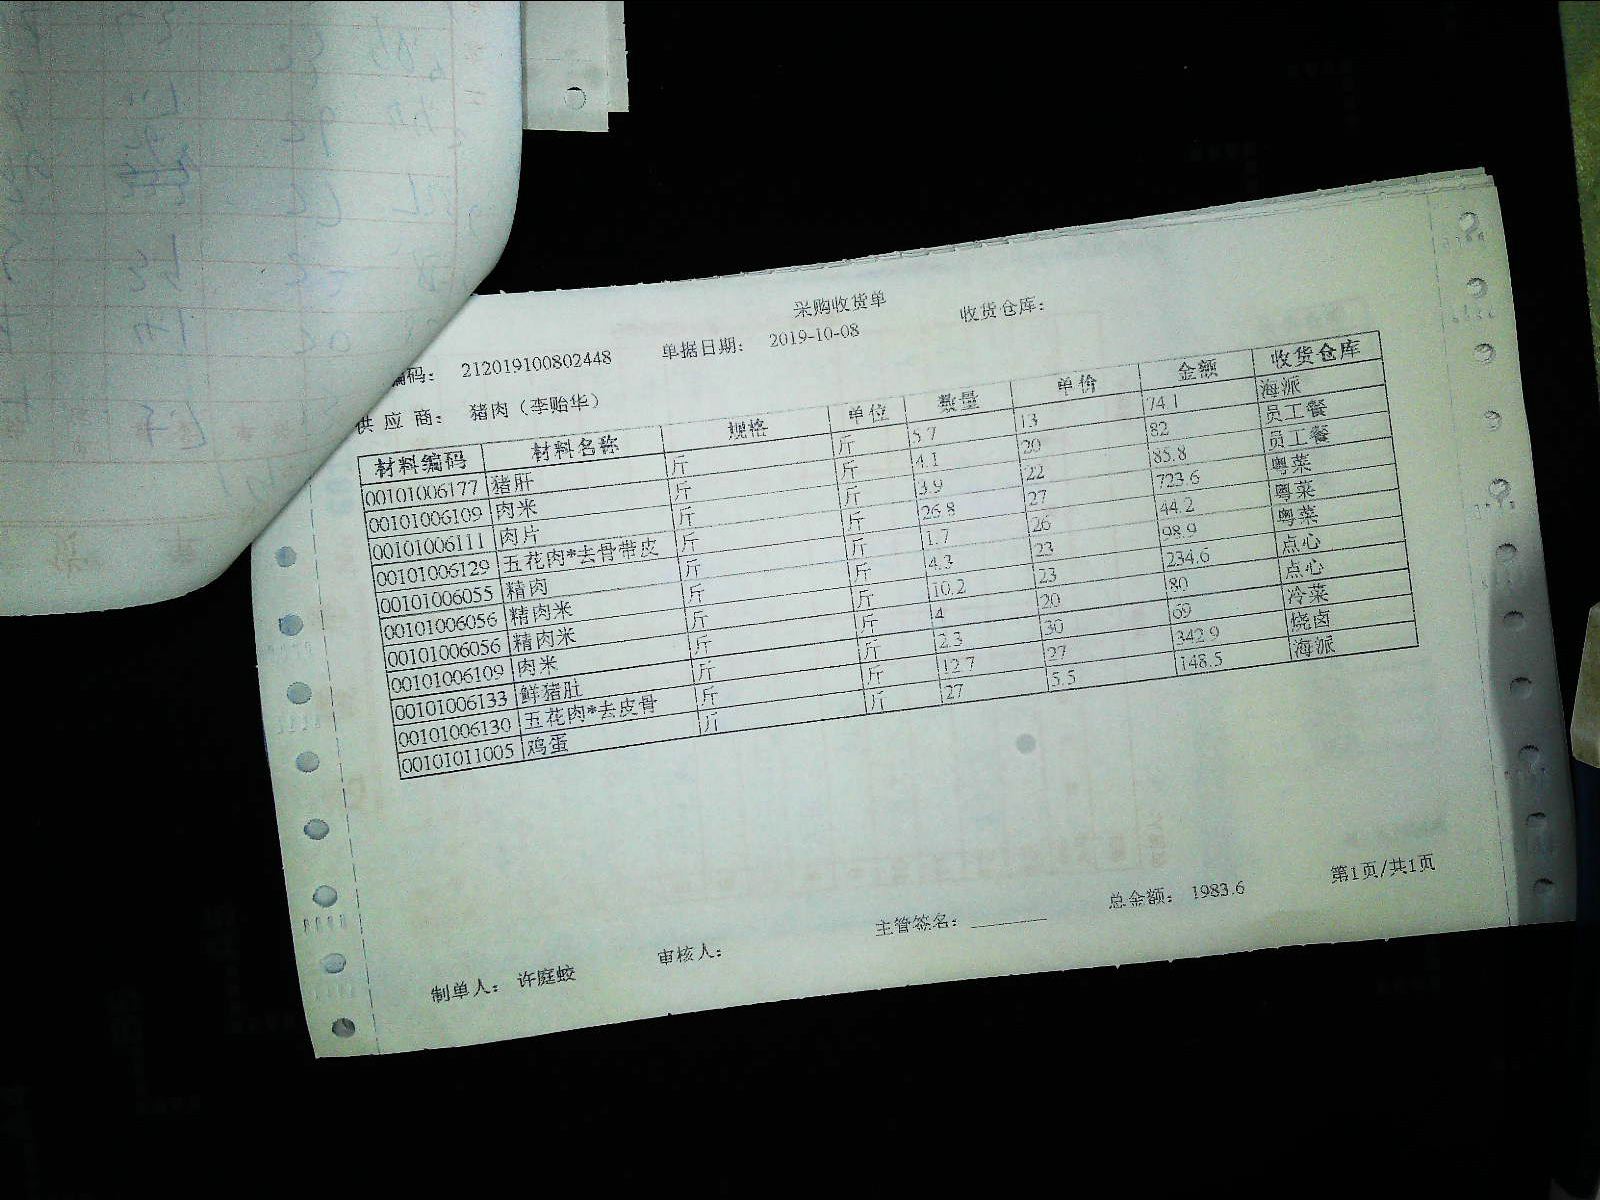 采购收货单
编码: 212019100802448 单据日期: 2019-10-08 收货仓库:
供应商: 猪肉(李贻华)
材料编码 材料名称 规格 单位 数量 单价 金额 收货仓库
00101006177 猪肝 斤 斤 5.7 13 74.1 海派
00101006109 肉米 斤 斤 4.1 20 82 员工餐
00101006111 肉片 斤 斤 3.9 22 85.8 员工餐
00101006129 五花肉*去骨带皮 斤 斤 26.8 27 723.6 粤菜
00101006055 精肉 斤 斤 1.7 26 44.2 粤菜
00101006056 精肉米 斤 斤 4.3 23 98.9 粤菜
00101006056 精肉米 斤 斤 10.2 23 234.6 点心
00101006109 肉米 斤 斤 4 20 80 点心
00101006133 鲜猪肚 斤 斤 2.3 30 69 冷菜
00101006130 五花肉*去皮骨 斤 斤 12.7 27 342.9 烧卤
00101011005 鸡蛋 斤 斤 27 5.5 148.5 海派
制单人: 许庭蛟 审核人: 主管签名: 总金额: 1983.6 第1页/共1页